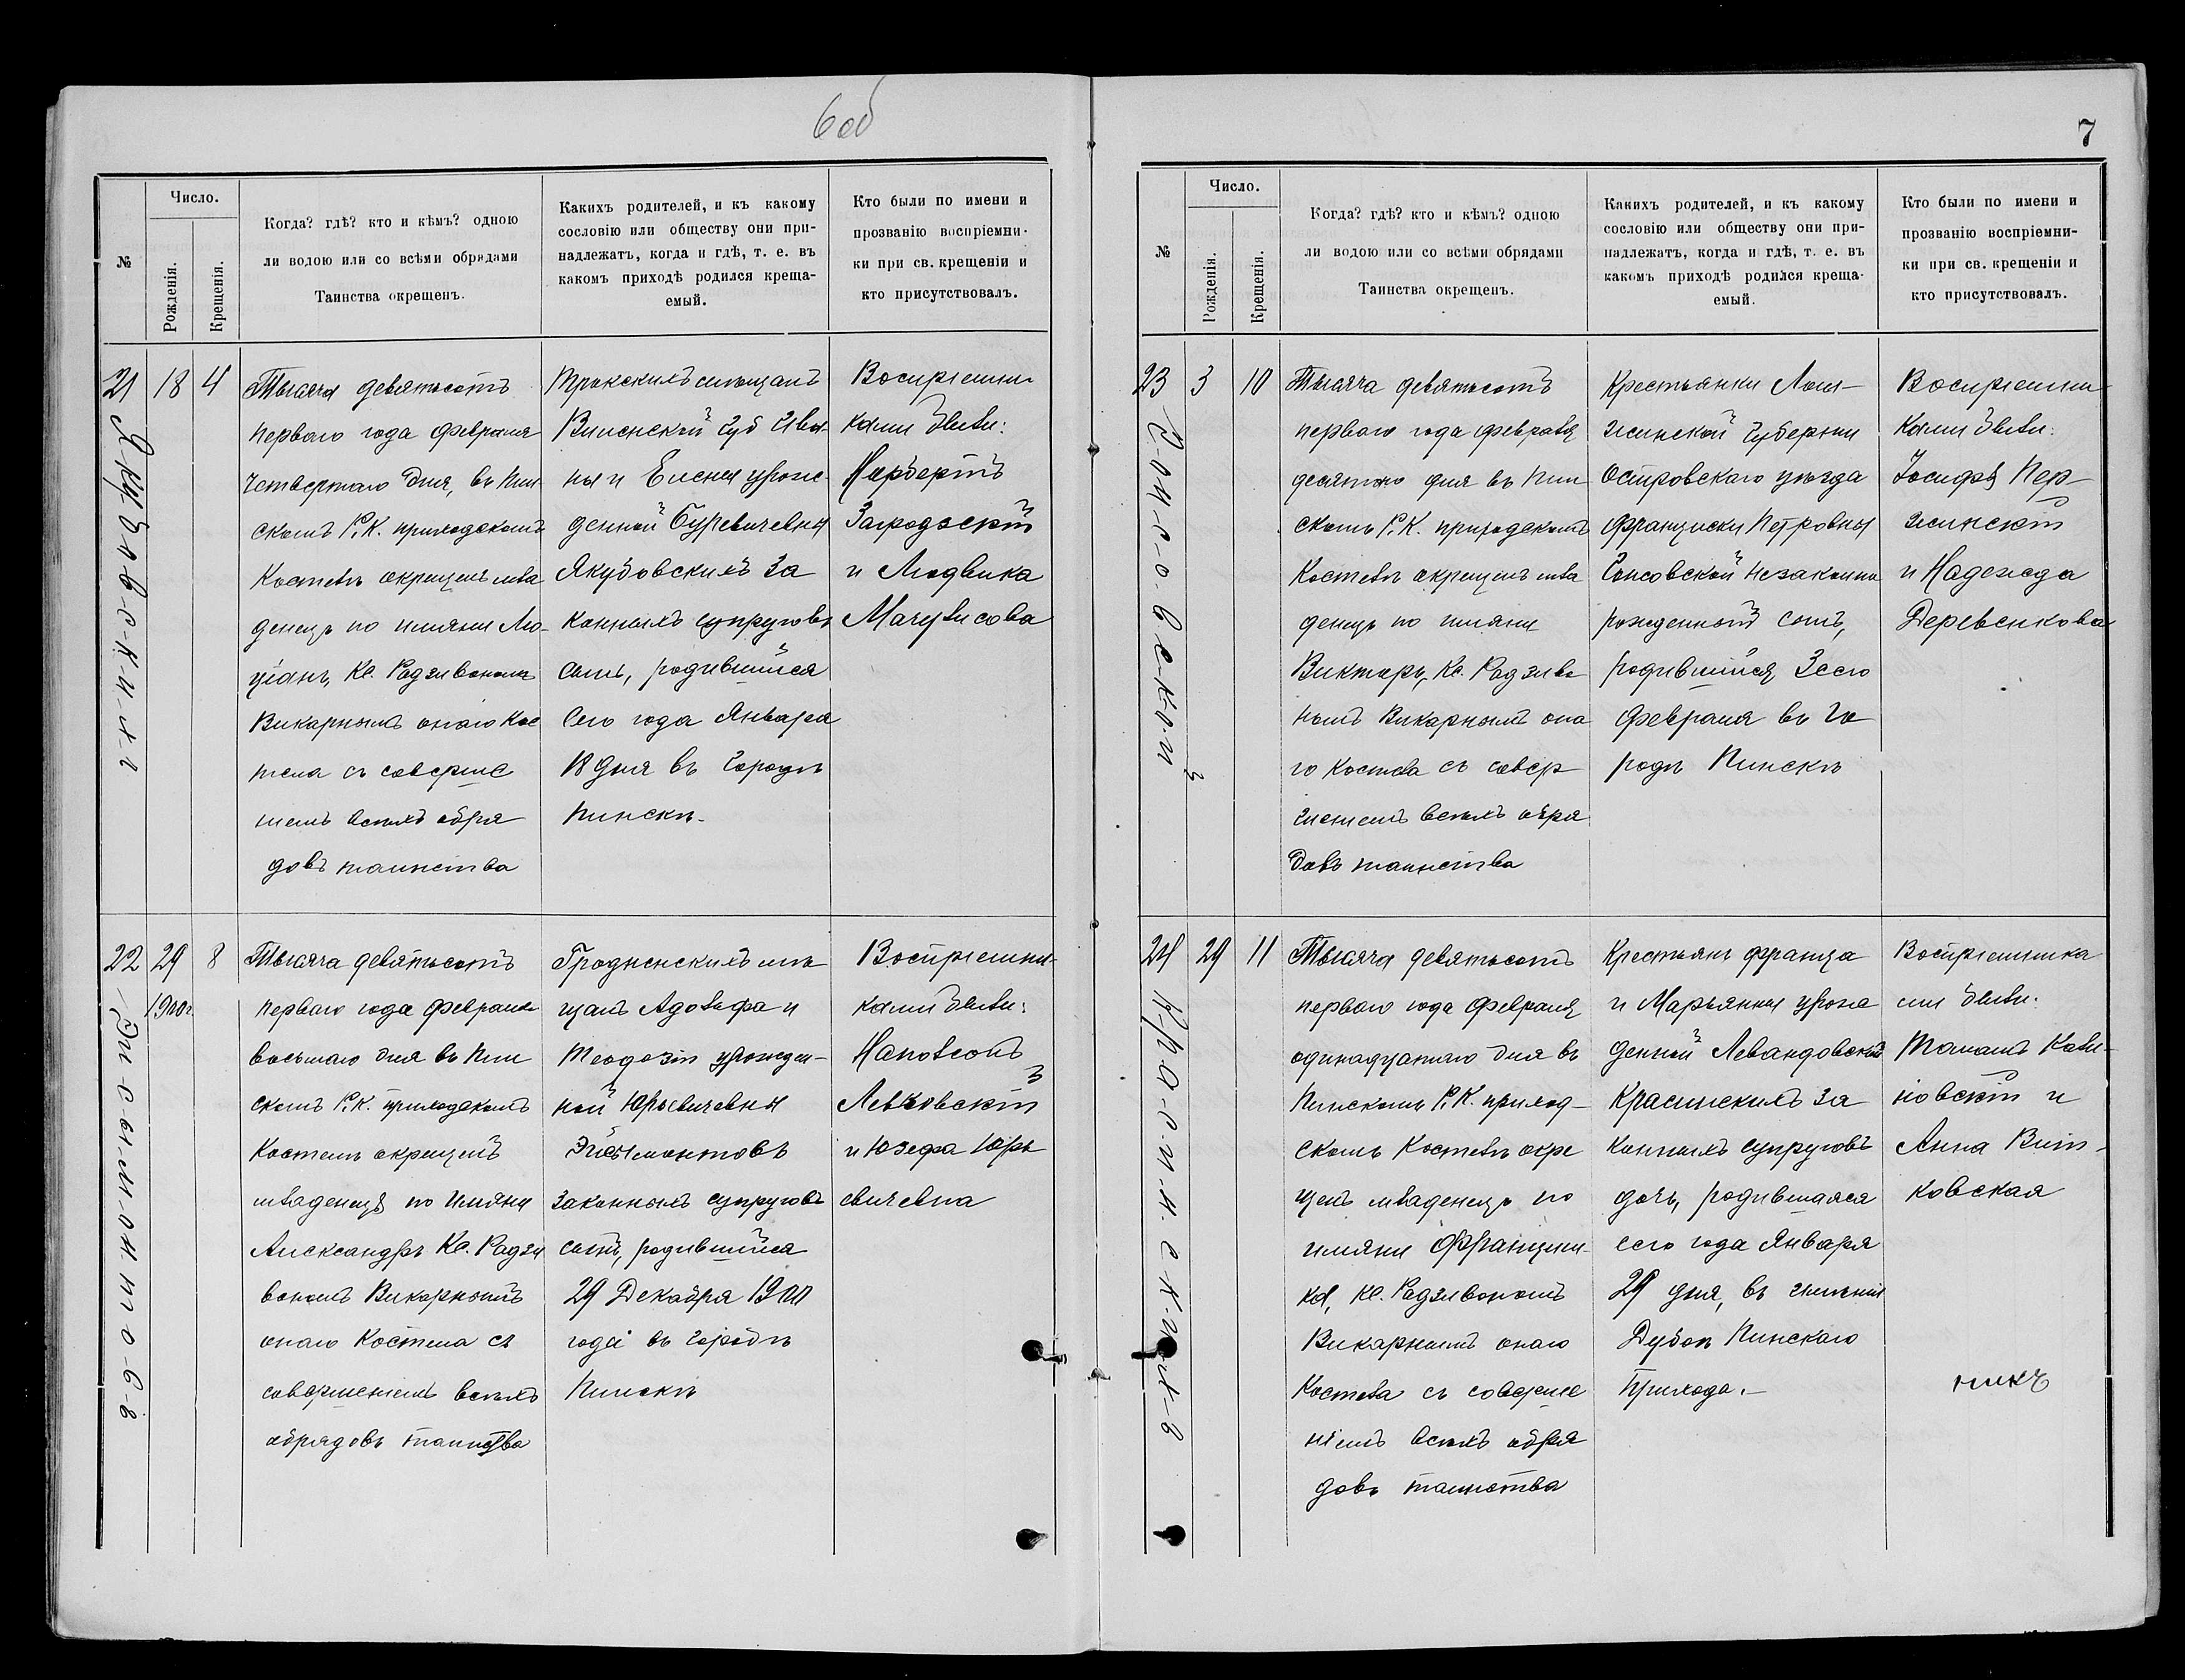 6 об
№
Число.
Рожденія.
Крещенія.
Когда? гдѣ? кто и кѣмъ? одною
ли водою или со всѣми обрядами
Таинства окрещенъ.
Какихъ родителей, и къ какому
сословію или обществу они при-
надлежатъ, когда и гдѣ, т. е. въ
какомъ приходѣ родился креща-
емый.
Кто были по имени и
прозванію воспріемни-
ки при св. крещеніи и
кто присутствовалъ.
21
18
4
Тысяча девятьсотъ
перваго года февраля
четвертаго дня, въ Пин
скомъ Р. К. приходскомъ
Костелѣ окрещенъ мла
денецъ по имяни Лю-
ціанъ, Кс. Радзивономъ
Викарнымъ онаго Кос
тела съ соверше
ніемъ всѣхъ обря
довъ таинства
Трокскихъ мѣщанъ
Виленской Губ Ива-
на и Елены урож-
денной Буревичевны
Якубовскихъ За
конныхъ супруговъ
сынъ, родившійся
Сего года Января
18 дня въ Городѣ
Пинскѣ.
Воспріемни-
ками были:
Норбертъ
Загродзскій
и Людвика
Мачульсова
22
29
8
1900 г.
Тысяча девятьсотъ
перваго года февраля
восьмаго дня въ Пин
скомъ Р. К. приходскомъ
Костелѣ окрещенъ
младенецъ по имяни
Александръ Кс. Радзи
вономъ Викарнымъ
онаго Костела съ
совершеніемъ всѣхъ
обрядовъ таинства
Гродненскихъ мѣ
щанъ Адольфа и
Теодозіи урожден-
ной Юрьевичевны
законныхъ супруговъ
сынъ, родившійся
29 Декабря 1900
года въ Городѣ
Пинскѣ
Воспріемни-
ками были:
Наполеонъ
Левковскій
и Юзефа Юрь
евичевна
7
№
Число.
Рожденія.
Крещенія.
Когда? гдѣ? кто и кѣмъ? одною
ли водою или со всѣми обрядами
Таинства окрещенъ.
Какихъ родителей, и къ какому
сословію или обществу они при-
надлежатъ, когда и гдѣ, т. е. въ
какомъ приходѣ родился креща-
емый.
Кто были по имени и
прозванію воспріемни-
ки при св. крещеніи и
кто присутствовалъ.
23
3
10
Тысяча девятьсотъ
перваго года февраля
десятаго дня въ Пин
скомъ Р. К. приходскомъ
Костелѣ окрещенъ мла
денецъ по имяни
Викторъ, Кс. Радзиво
номъ Викарнымъ она
го Костела съ совер
шеніемъ всѣхъ обря
довъ таинства
Крестьянки Лом-
жинской Губерніи
Островскаго уѣзда
Франциски Петровны
незаконно
рожденный сынъ,
родившійся 3 сего
февраля въ Го
родѣ Пинскѣ
Воспріемни
ками были:
Іосифъ Пер-
жинскій
и Надежда
Деревенкова
24
29
11
Тысяча девятьсотъ
перваго года февраля
одинадцатаго дня въ
Пинскомъ Р. К. приход-
скомъ Костелѣ окре
щенъ младенецъ по
имяни Францишка,
Кс. Радзивономъ
Викарнымъ онаго
Костела съ соверше
ніемъ всѣхъ обря
довъ таинства
Крестьянъ Франца
и Марьянны урож
денной Левандовской
Красинскихъ За
конныхъ супруговъ
дочь, родившаяся
сего года Января
29 дня, въ имѣніи
Дубоѣ Пинскаго
Прихода.
Воспріемника
ми были:
Томашъ Кали-
новскій и
Анна Вит-
ковская